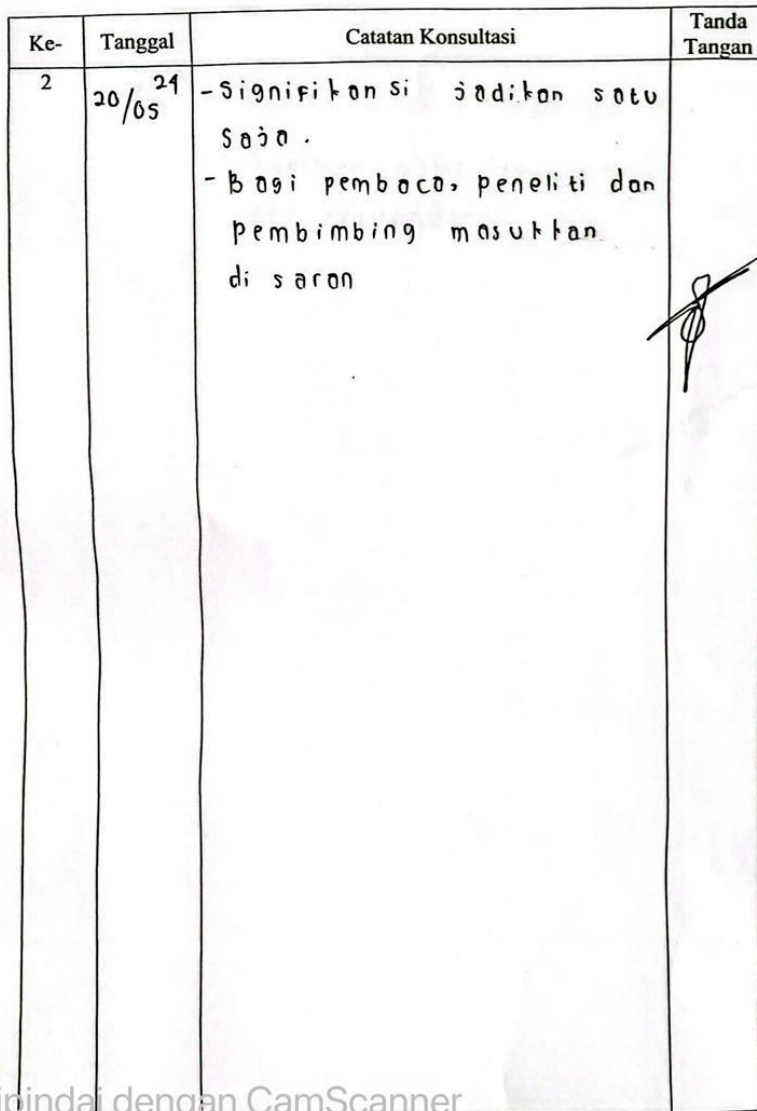 Ke- Tanggal Catatan Konsultasi Tanda Tangan
2 20/05 24 - Signifikansi jadikan satu
saja.
- Bagi pembaca, peneliti dan
pembimbing masukkan
di saran
ipindai dengan CamScanner